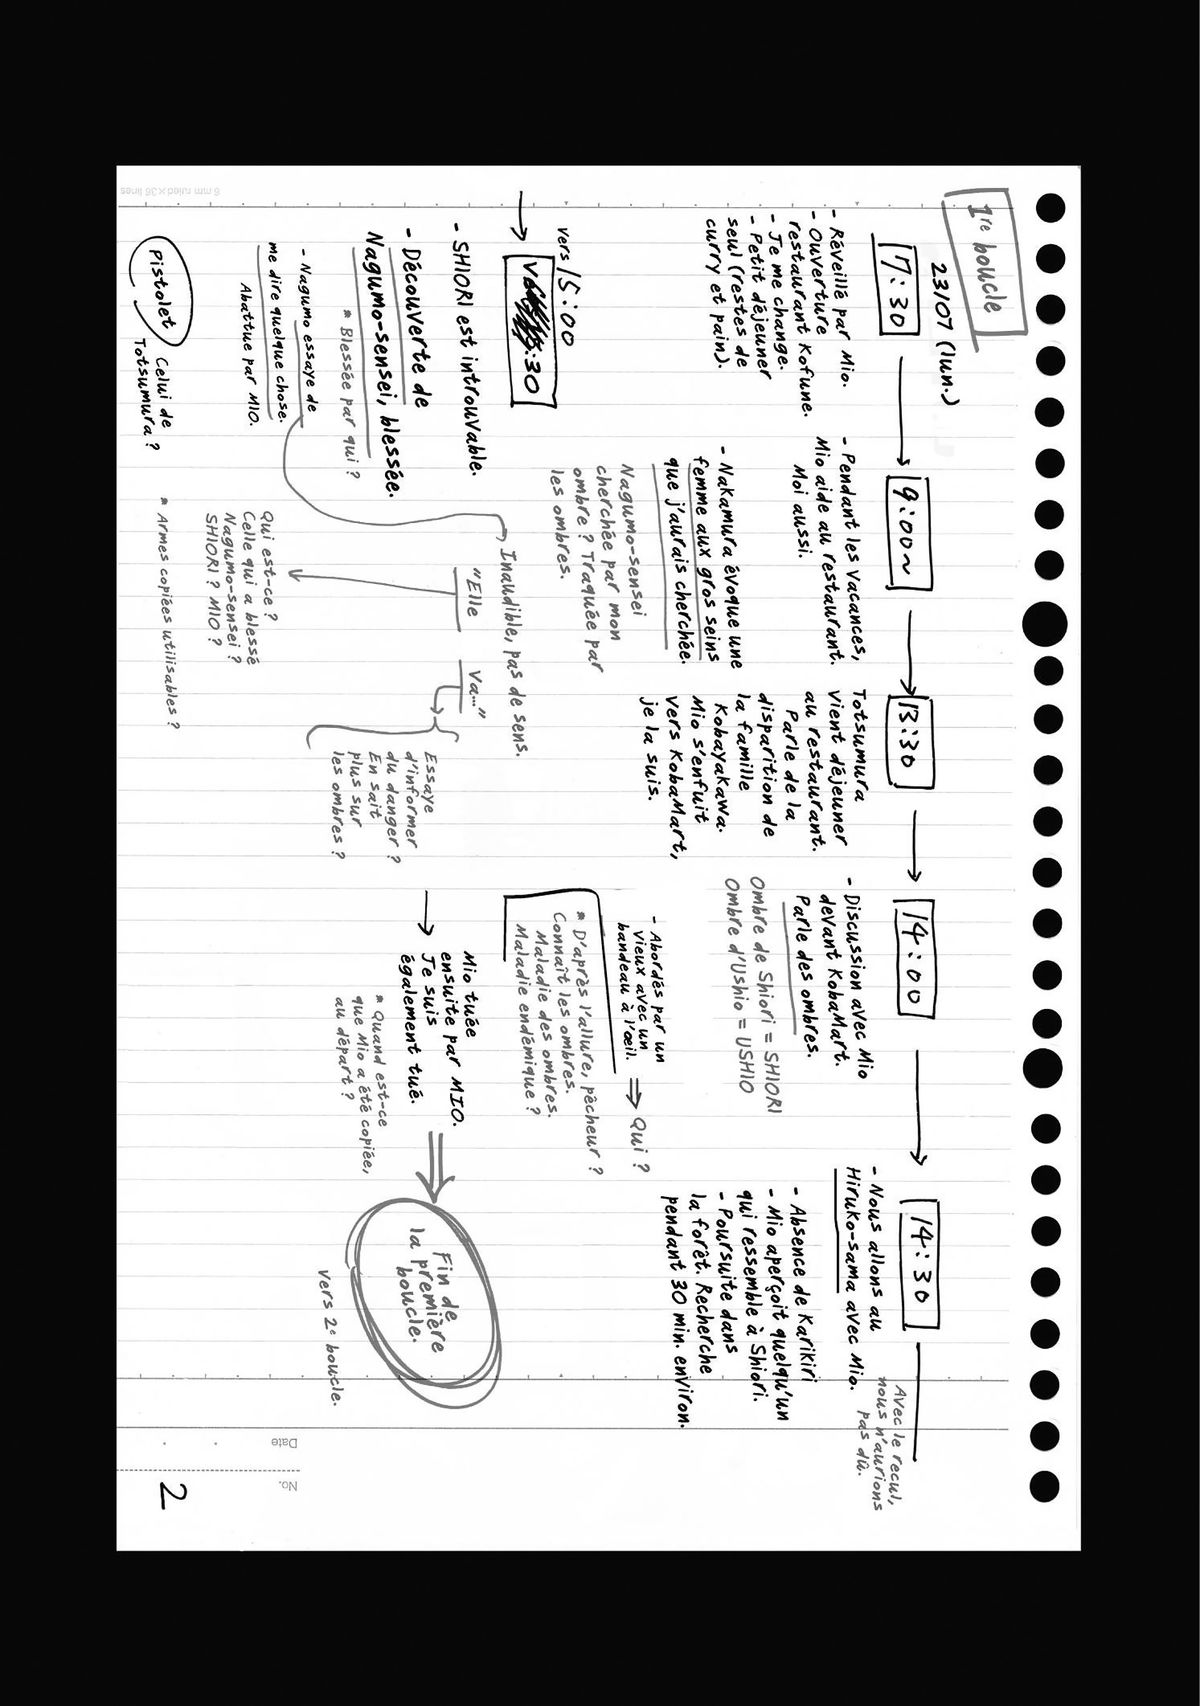 1re boucle
23/07 (lun.)
7:30
- Réveillé par Mio.
- Ouverture
restaurant Kofune.
- Je me change.
- Petit déjeuner
seul (restes de
curry et pain).
9:00~
- Pendant les vacances,
Mio aide au restaurant.
Moi aussi.
- Nakamura évoque une
femme aux gros seins
que j'aurais cherchée.
Nagumo-sensei
cherchée par mon
ombre ? Traquée par
les ombres.
13:30
Totsumura
vient déjeuner
au restaurant.
Parle de la
disparition de
la famille
Kobayakawa.
Mio s'enfuit
vers KobaMart,
je la suis.
14:00
- Discussion avec Mio
devant KobaMart.
Parle des ombres.
Ombre de Shiori = SHIORI
Ombre d'Ushio = USHIO
- Abordés par un
vieux avec un
bandeau à l'œil.
⇒ Qui ?
* D'après l'allure, pêcheur ?
Connaît les ombres.
Maladie des ombres.
Maladie endémique ?
14:30
- Nous allons au
Hiruko-sama avec Mio.
Avec le recul,
nous n'aurions
pas dû.
- Absence de Karikiri
- Mio aperçoit quelqu'un
qui ressemble à Shiori.
- Poursuite dans
la forêt. Recherche
pendant 30 min. environ.
vers 15:00
:30
- SHIORI est introuvable.
- Découverte de
Nagumo-sensei, blessée.
* Blessée par qui ?
- Nagumo essaye de
me dire quelque chose.
Abattue par MIO.
Pistolet
Celui de
Totsumura ?
* Armes copiées utilisables ?
Inaudible, pas de sens.
"Elle
Va..."
Qui est-ce ?
Celle qui a blessé
Nagumo-sensei ?
SHIORI ? MIO ?
Essaye
d'informer
du danger ?
En sait
plus sur
les ombres ?
Mio tuée
ensuite par MIO.
Je suis
également tué.
* Quand est-ce
que Mio a été copiée,
au départ ?
Fin de
la première
boucle.
vers 2e boucle.
6 mm ruled×36 lines
Date
No.
2